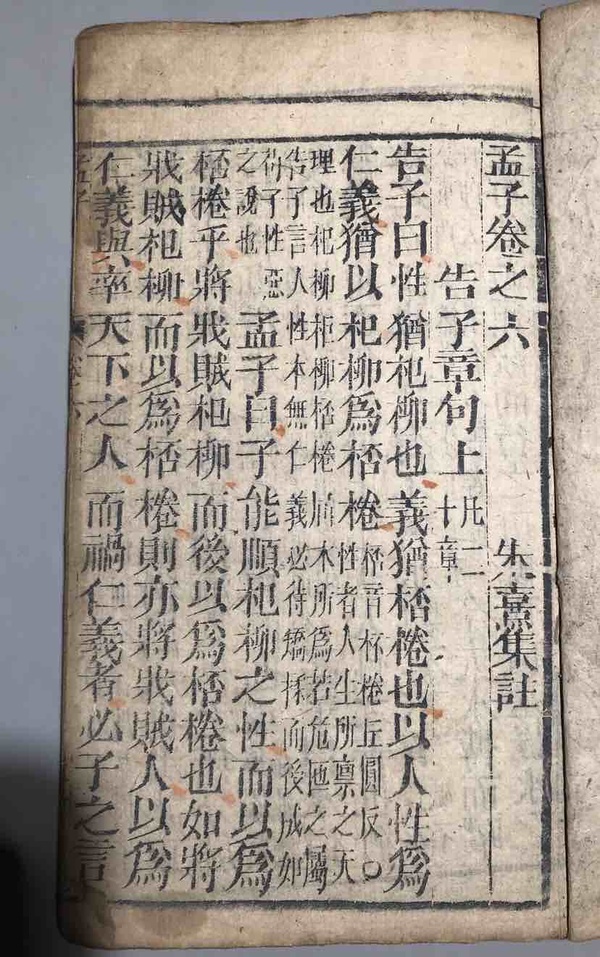 孟子卷之六 朱熹集註
告子章句上
凡二
十章
告子曰性猶杞柳也義猶桮棬也以人性爲
仁義猶以杞柳爲桮棬
桮音杯棬丘圓反○
性者人生所禀之天
理也杞柳柜柳桮棬屈木所爲若卮匜之屬
告子言人性本無仁義必待矯揉而後成如
荀子性惡
之說也
孟子曰子能順杞柳之性而以爲
桮棬乎將戕賊杞柳而後以爲桮棬也如將
戕賊杞柳而以爲桮棬則亦將戕賊人以爲
仁義與率天下之人而禍仁義者必子之言
孟子